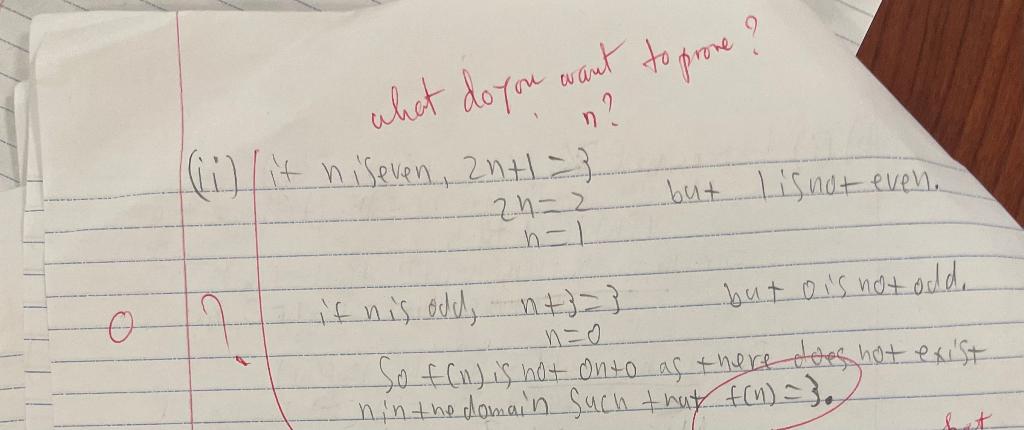 what do you want to prove?
n?
(ii) if n is even, 2n+1=3
2n=2 but 1 is not even.
n=1
if n is odd, n+3=3 but 0 is not odd.
0 ? n=0
So f(n) is not onto as there does not exist
n in the domain such that f(n)=3.